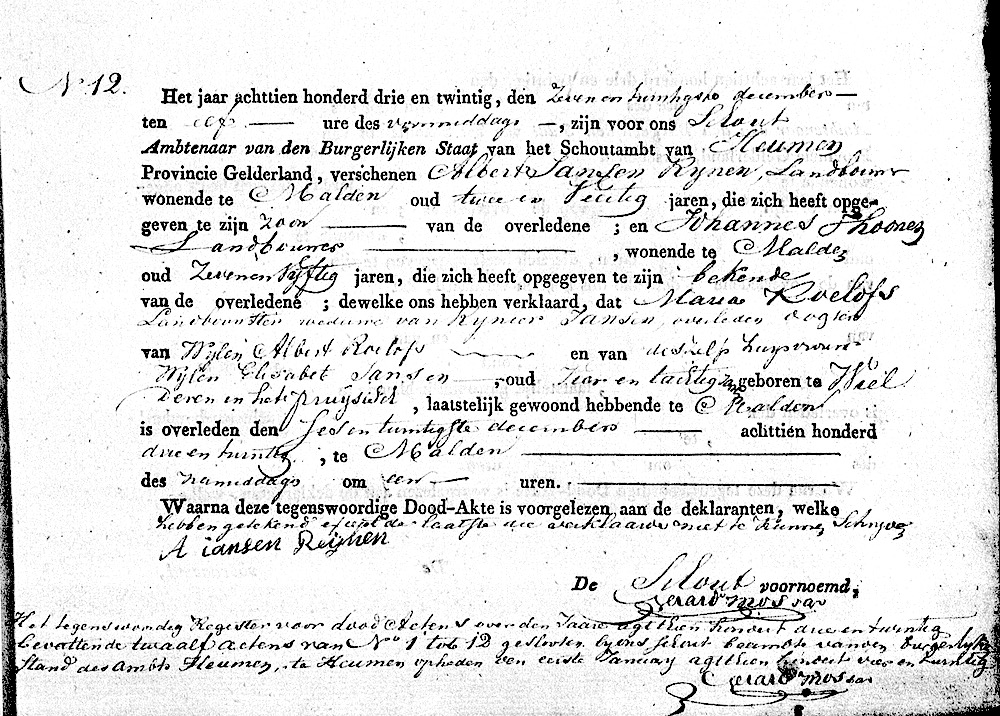 No 12.
Het jaar achttien honderd drie en twintig, den Zevenentwintigste december
ten elf ure des voormiddags, zijn voor ons Schout
Ambtenaar van den Burgerlijken Staat van het Schoutambt van Heumen
Provincie Gelderland, verschenen Albert Jansen Rynen, Landbouwer
wonende te Malden oud twee en Veertig jaren, die zich heeft opge-
geven te zijn zoon van de overledene ; en Johannes Thoonen
Landbouwer, wonende te Malden
oud Zevenenvyftig jaren, die zich heeft opgegeven te zijn bekende
van de overledene ; dewelke ons hebben verklaard, dat Maria Roelofs
Landbouwster weduwe van Rynier Jansen, overleden
van Wylen Albert Roelofs en van deszelfs huysvrouw
Wylen Elisabet Jansen, oud en tachtig geboren te Wiel
deren in het pruysisch, laatstelijk gewoond hebbende te Malden
is overleden den sesentwintigste december achttien honderd
drie en twintig, te Malden
des namiddags om een uren.
Waarna deze tegenswoordige Dood-Akte is voorgelezen aan de deklaranten, welke
hebben getekend de laatste die verklaarde niet te kunnen Schryven
A iansen Reijnen
De Schout voornoemd,
Gerard Mossar
Het tegenswoordig Register voor dood Actens over den Jaare agttien hondert drie en twintig
bevattende twaalf actens van No 1 tot 12 gesloten by ons schout beambte van den burgerlyke
stand des ambts Heumen, te Heumen op heden den eerste January agttien hondert vier en twintig
Gerard Mossar